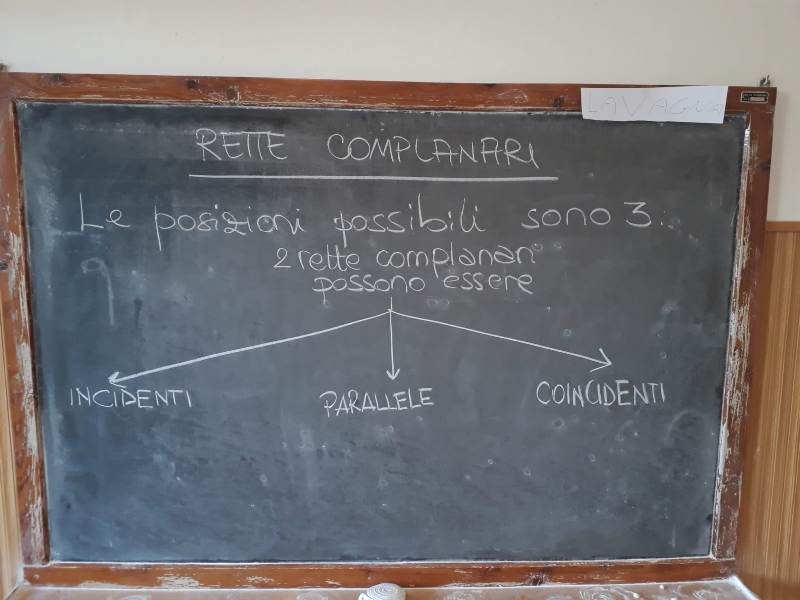 LAVAGNA
RETTE COMPLANARI
Le posizioni possibili sono 3:
2 rette complanari
possono essere
INCIDENTI
PARALLELE
COINCIDENTI